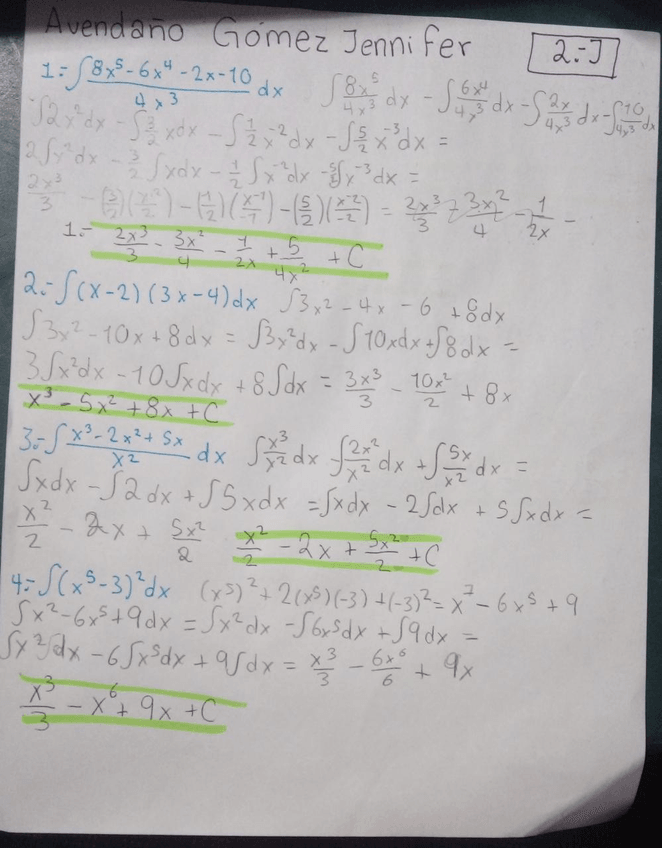 Avendaño Gómez Jennifer 2.-J
1.- ∫ (8x⁵ - 6x⁴ - 2x - 10)/(4x³) dx ∫ 8x⁵/4x³ dx - ∫ 6x⁴/4x³ dx - ∫ 2x/4x³ dx - ∫ 10/4x³ dx
∫2x²dx - ∫ 3/2 xdx - ∫ 1/2 x⁻²dx - ∫ 5/2 x⁻³dx =
2∫x²dx - 3/2 ∫xdx - 1/2 ∫x⁻²dx - 5/2 ∫x⁻³dx =
2x³/3 - (3/2)(x²/2) - (1/2)(x⁻¹/-1) - (5/2)(x⁻²/-2) = 2x³/3 - 3x²/4 - 1/2x -
1.- 2x³/3 - 3x²/4 - 1/2x + 5/4x² + C
2.- ∫(x-2)(3x-4)dx ∫3x² - 4x - 6 + 8dx
∫3x² - 10x + 8dx = ∫3x²dx - ∫10xdx + ∫8dx =
3∫x²dx - 10∫xdx + 8∫dx = 3x³/3 - 10x²/2 + 8x
x³ - 5x² + 8x + C
3.- ∫ (x³ - 2x² + 5x)/x² dx ∫ x³/x² dx - ∫ 2x²/x² dx + ∫ 5x/x² dx =
∫xdx - ∫2dx + ∫5xdx = ∫xdx - 2∫dx + 5∫xdx =
x²/2 - 2x + 5x²/2 x²/2 - 2x + 5x²/2 + C
4.- ∫(x⁵-3)²dx (x⁵)² + 2(x⁵)(-3) + (-3)² = x⁷ - 6x⁵ + 9
∫x² - 6x⁵ + 9dx = ∫x²dx - ∫6x⁵dx + ∫9dx =
∫x²dx - 6∫x⁵dx + 9∫dx = x³/3 - 6x⁶/6 + 9x
x³/3 - x⁶ + 9x + C